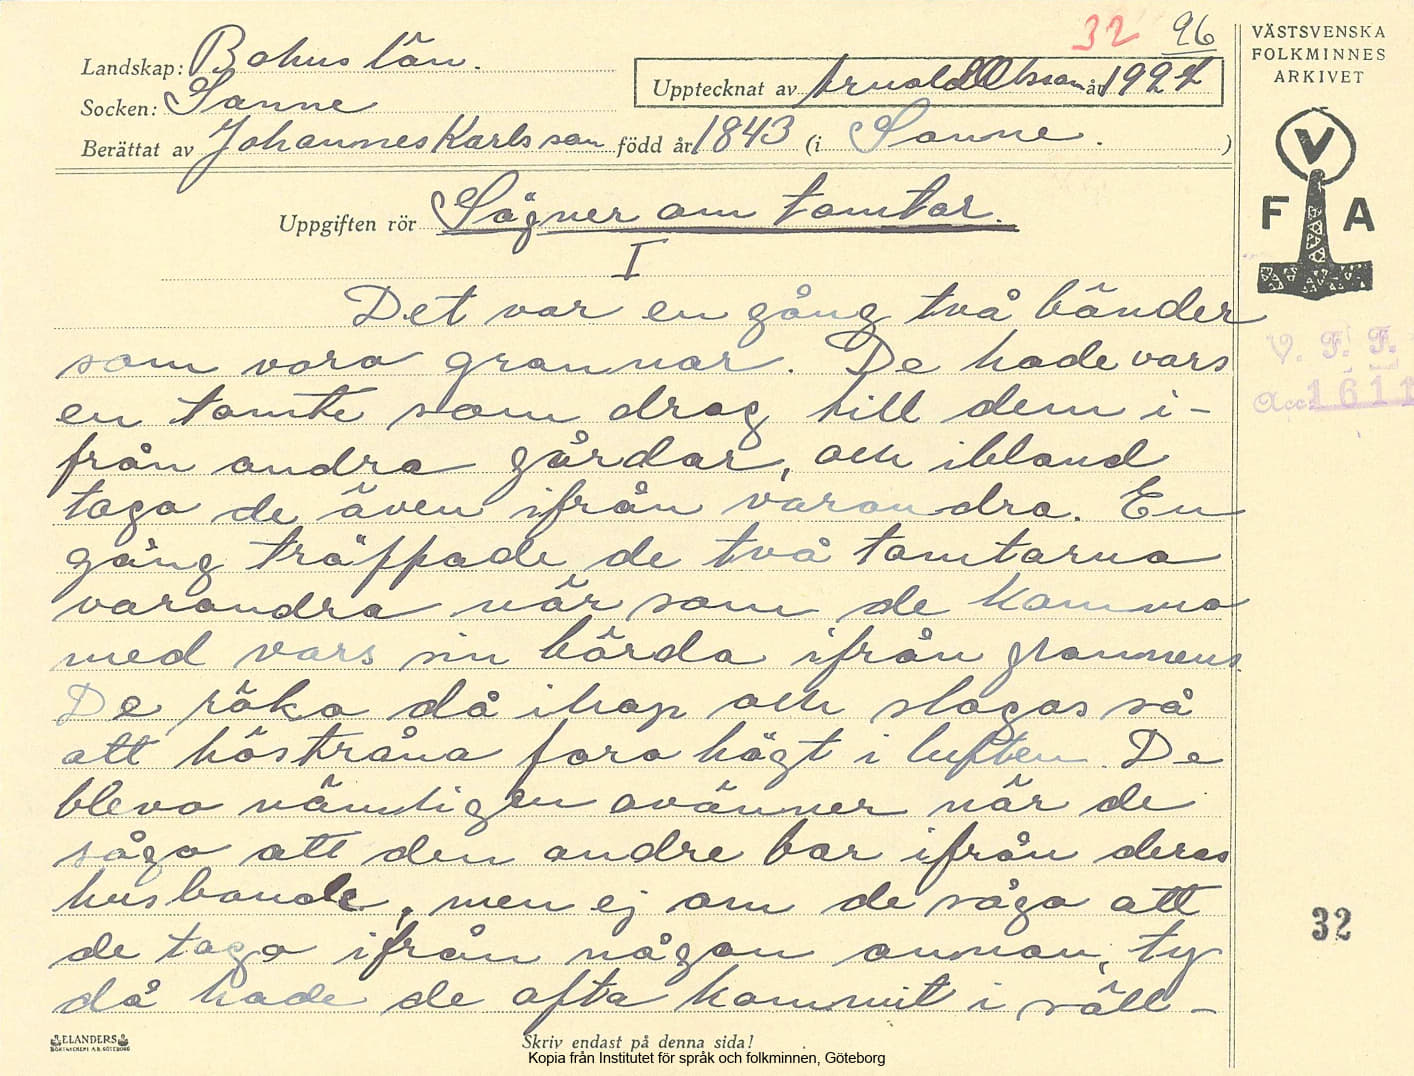 32 96
Landskap: Bohuslän.
Upptecknat av Arnold Olsson år 1927
Socken: Sanne
Berättat av Johannes Karlsson född år 1843 (i Sanne. )
Uppgiften rör Sägner om tomtar.
I
Det var en gång två bönder
som voro grannar. De hade vars
en tomte som drog till dem i-
från andra gårdar, och ibland
togo de även ifrån varandra. En
gång träffade de två tomtarna
varandra när som de kommo
med vars sin börda ifrån grannens.
De röko då ihop och slogos så
att höstråna foro högt i luften. De
blevo nämligen ovänner när de
sågo att den andre bar ifrån deras
husbonde, men ej om de sågo att
de togo ifrån någon annan, ty
då hade de ofta kommit i säll-
ELANDERS
BOKTRYCKERI A.B. GÖTEBORG
Skriv endast på denna sida!
Kopia från Institutet för språk och folkminnen, Göteborg
VÄSTSVENSKA
FOLKMINNES
ARKIVET
V
F A
V. F. F.
Acc. 1611
32